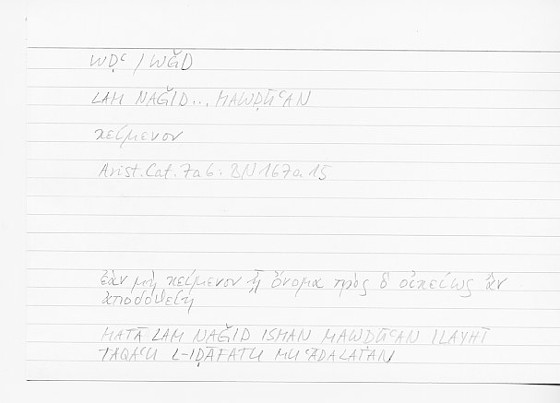 WḌʿ / WǦD
LAM NAǦID... MAWḌŪʿAN
κείμενον
Arist. Cat. 7a6 : BN 167a.15
ἐὰν μὴ κείμενον ᾖ ὄνομα πρὸς ὃ οἰκείως ἂν
ἀποδοθείη
MATĀ LAM NAǦID ISMAN MAWḌŪʿAN ILAYHI
TAQAʿU L-IḌĀFATU MUʿĀDALATAN